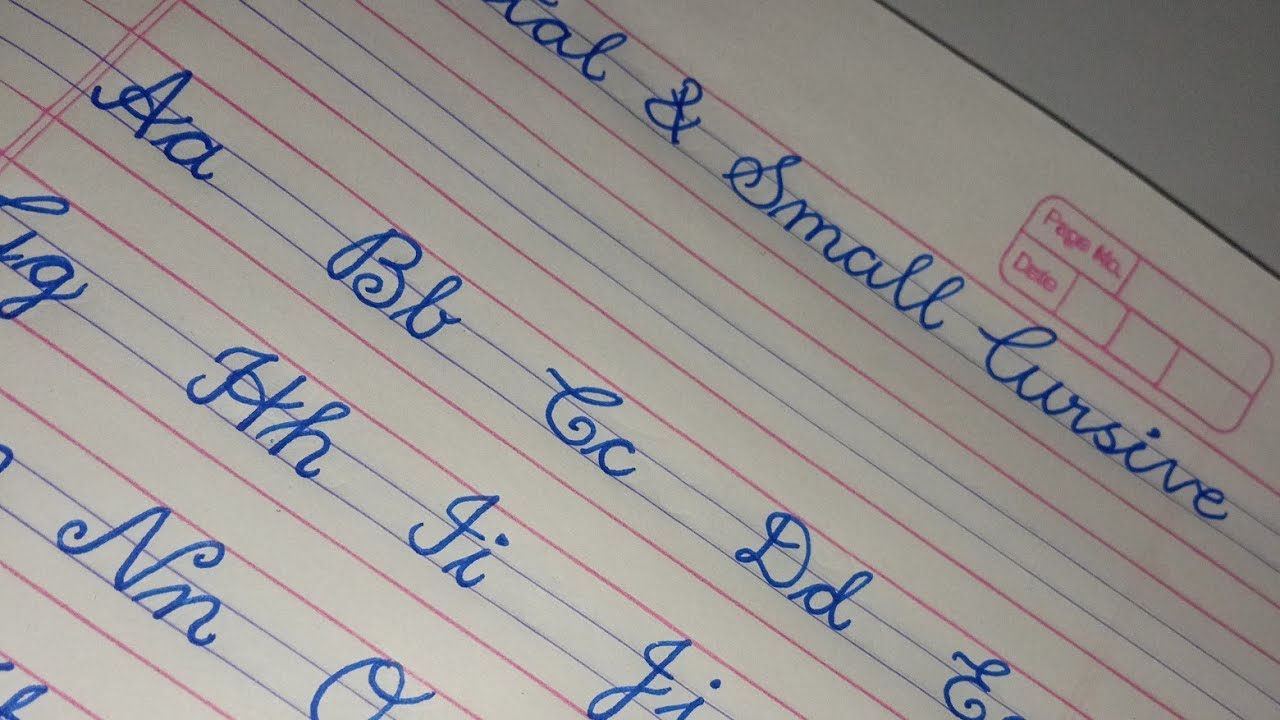 & Small Cursive
Page No.
Date
Aa Bb Cc Dd
Hh Ii Jj
Nn O